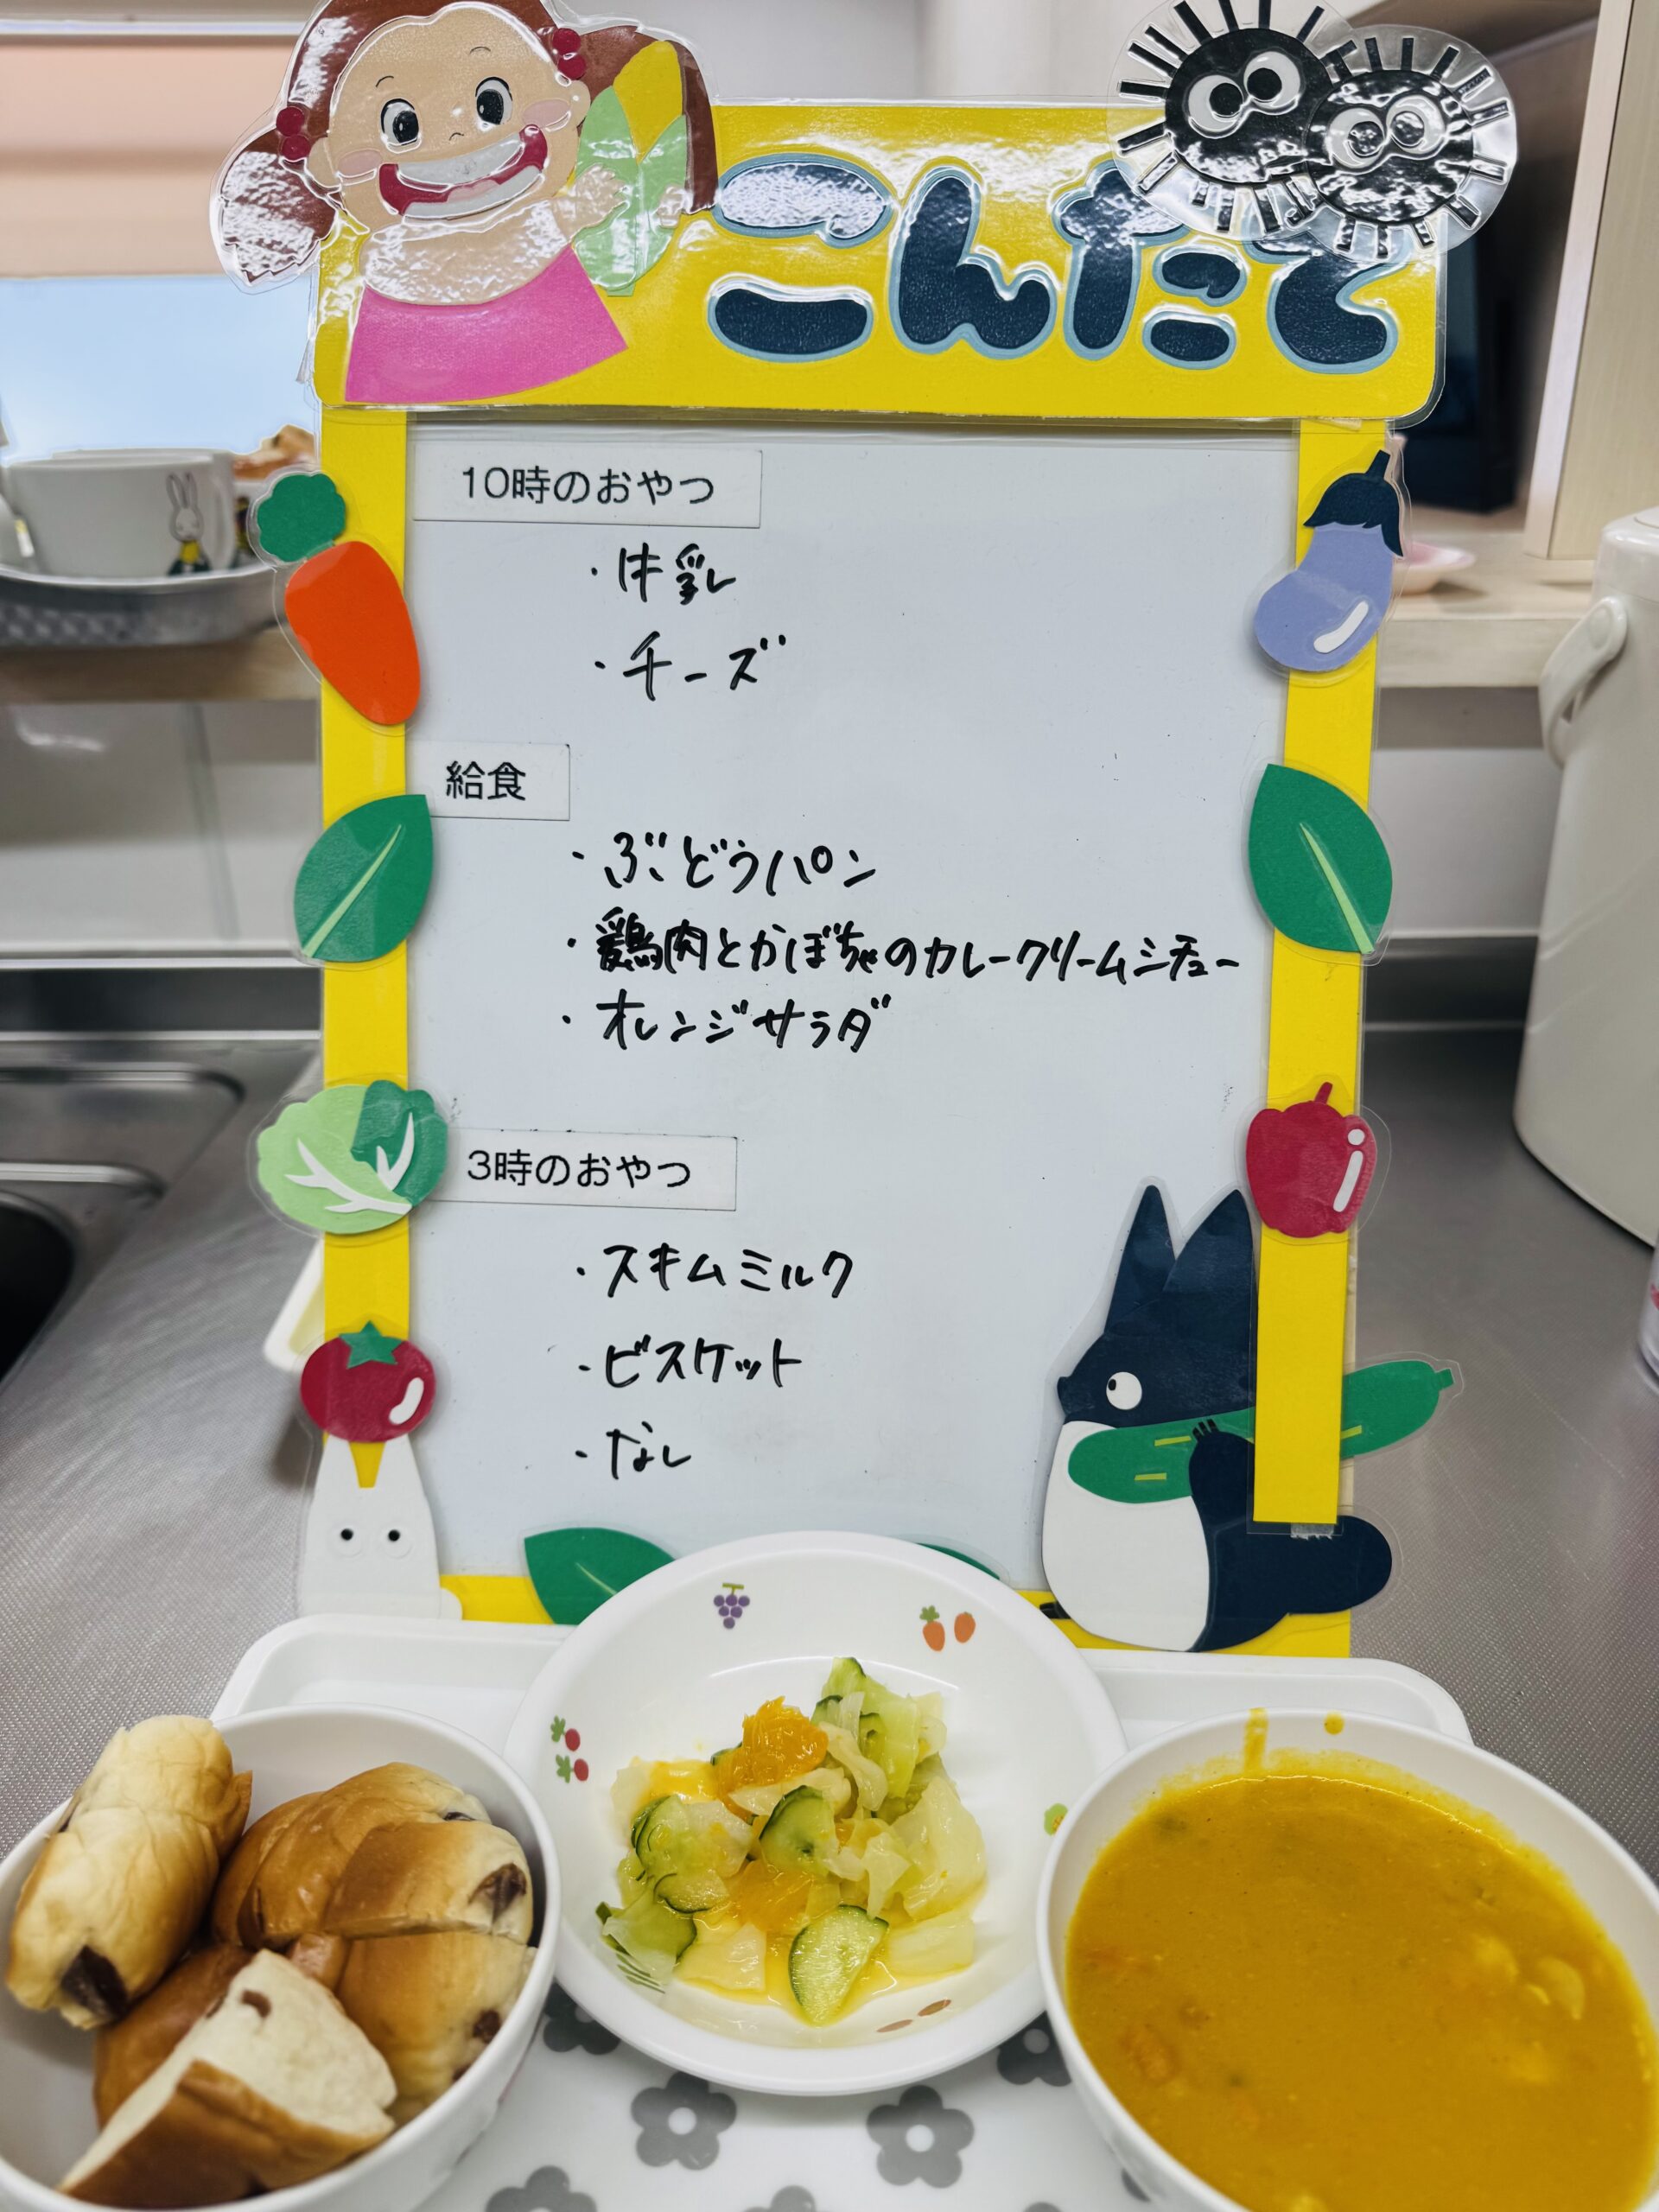 こんだて
10時のおやつ
・牛乳
・チーズ
給食
・ぶどうパン
・鶏肉とかぼちゃのカレークリームシチュー
・オレンジサラダ
3時のおやつ
・スキムミルク
・ビスケット
・なし